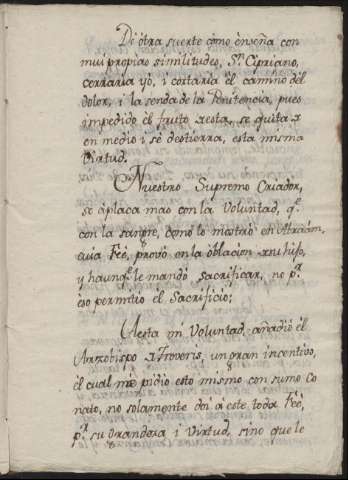 Di ótra suerte como ènseña con
mui propias similitudes, Sn. Cipriano,
cerraria yò, i cortaria èl camino dèl
dolor, i la senda de la Penitencia, pues
impedido èl fruto desta, se quita de
en medio i se destierra, esta misma
Virtud.
Nuestro Supremo Criador,
se àplaca mas con la Voluntad, qe.
con la sangre, como lo mostrò en Abraàm,
cuia Feè, provò en la òblacion de su hijo,
y haunqe. le mandò sacrificar, no pr.
eso permitio èl Sacrificio;
A esta mi Voluntad, añadiò èl
Arzobispo de Treveris, un gran incentivo,
èl cual me pidio esto mismo con sumo Co
nato, no solamente doi a este toda Feè,
pr. su Grandeza i Virtud, sino que le